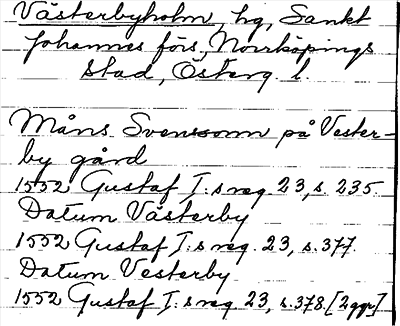 Västerbyholm, hg, Sankt
Johannes förs, Norrköpings
stad, Österg. l.
Måns Svensson på Vester-
by gård
1552 Gustaf I:s reg. 23, s. 235.
Datum Västerby
1552 Gustaf I:s reg. 23, s. 377.
Datum Vesterby
1552 Gustaf I:s reg 23, s. 378. [2 ggr]